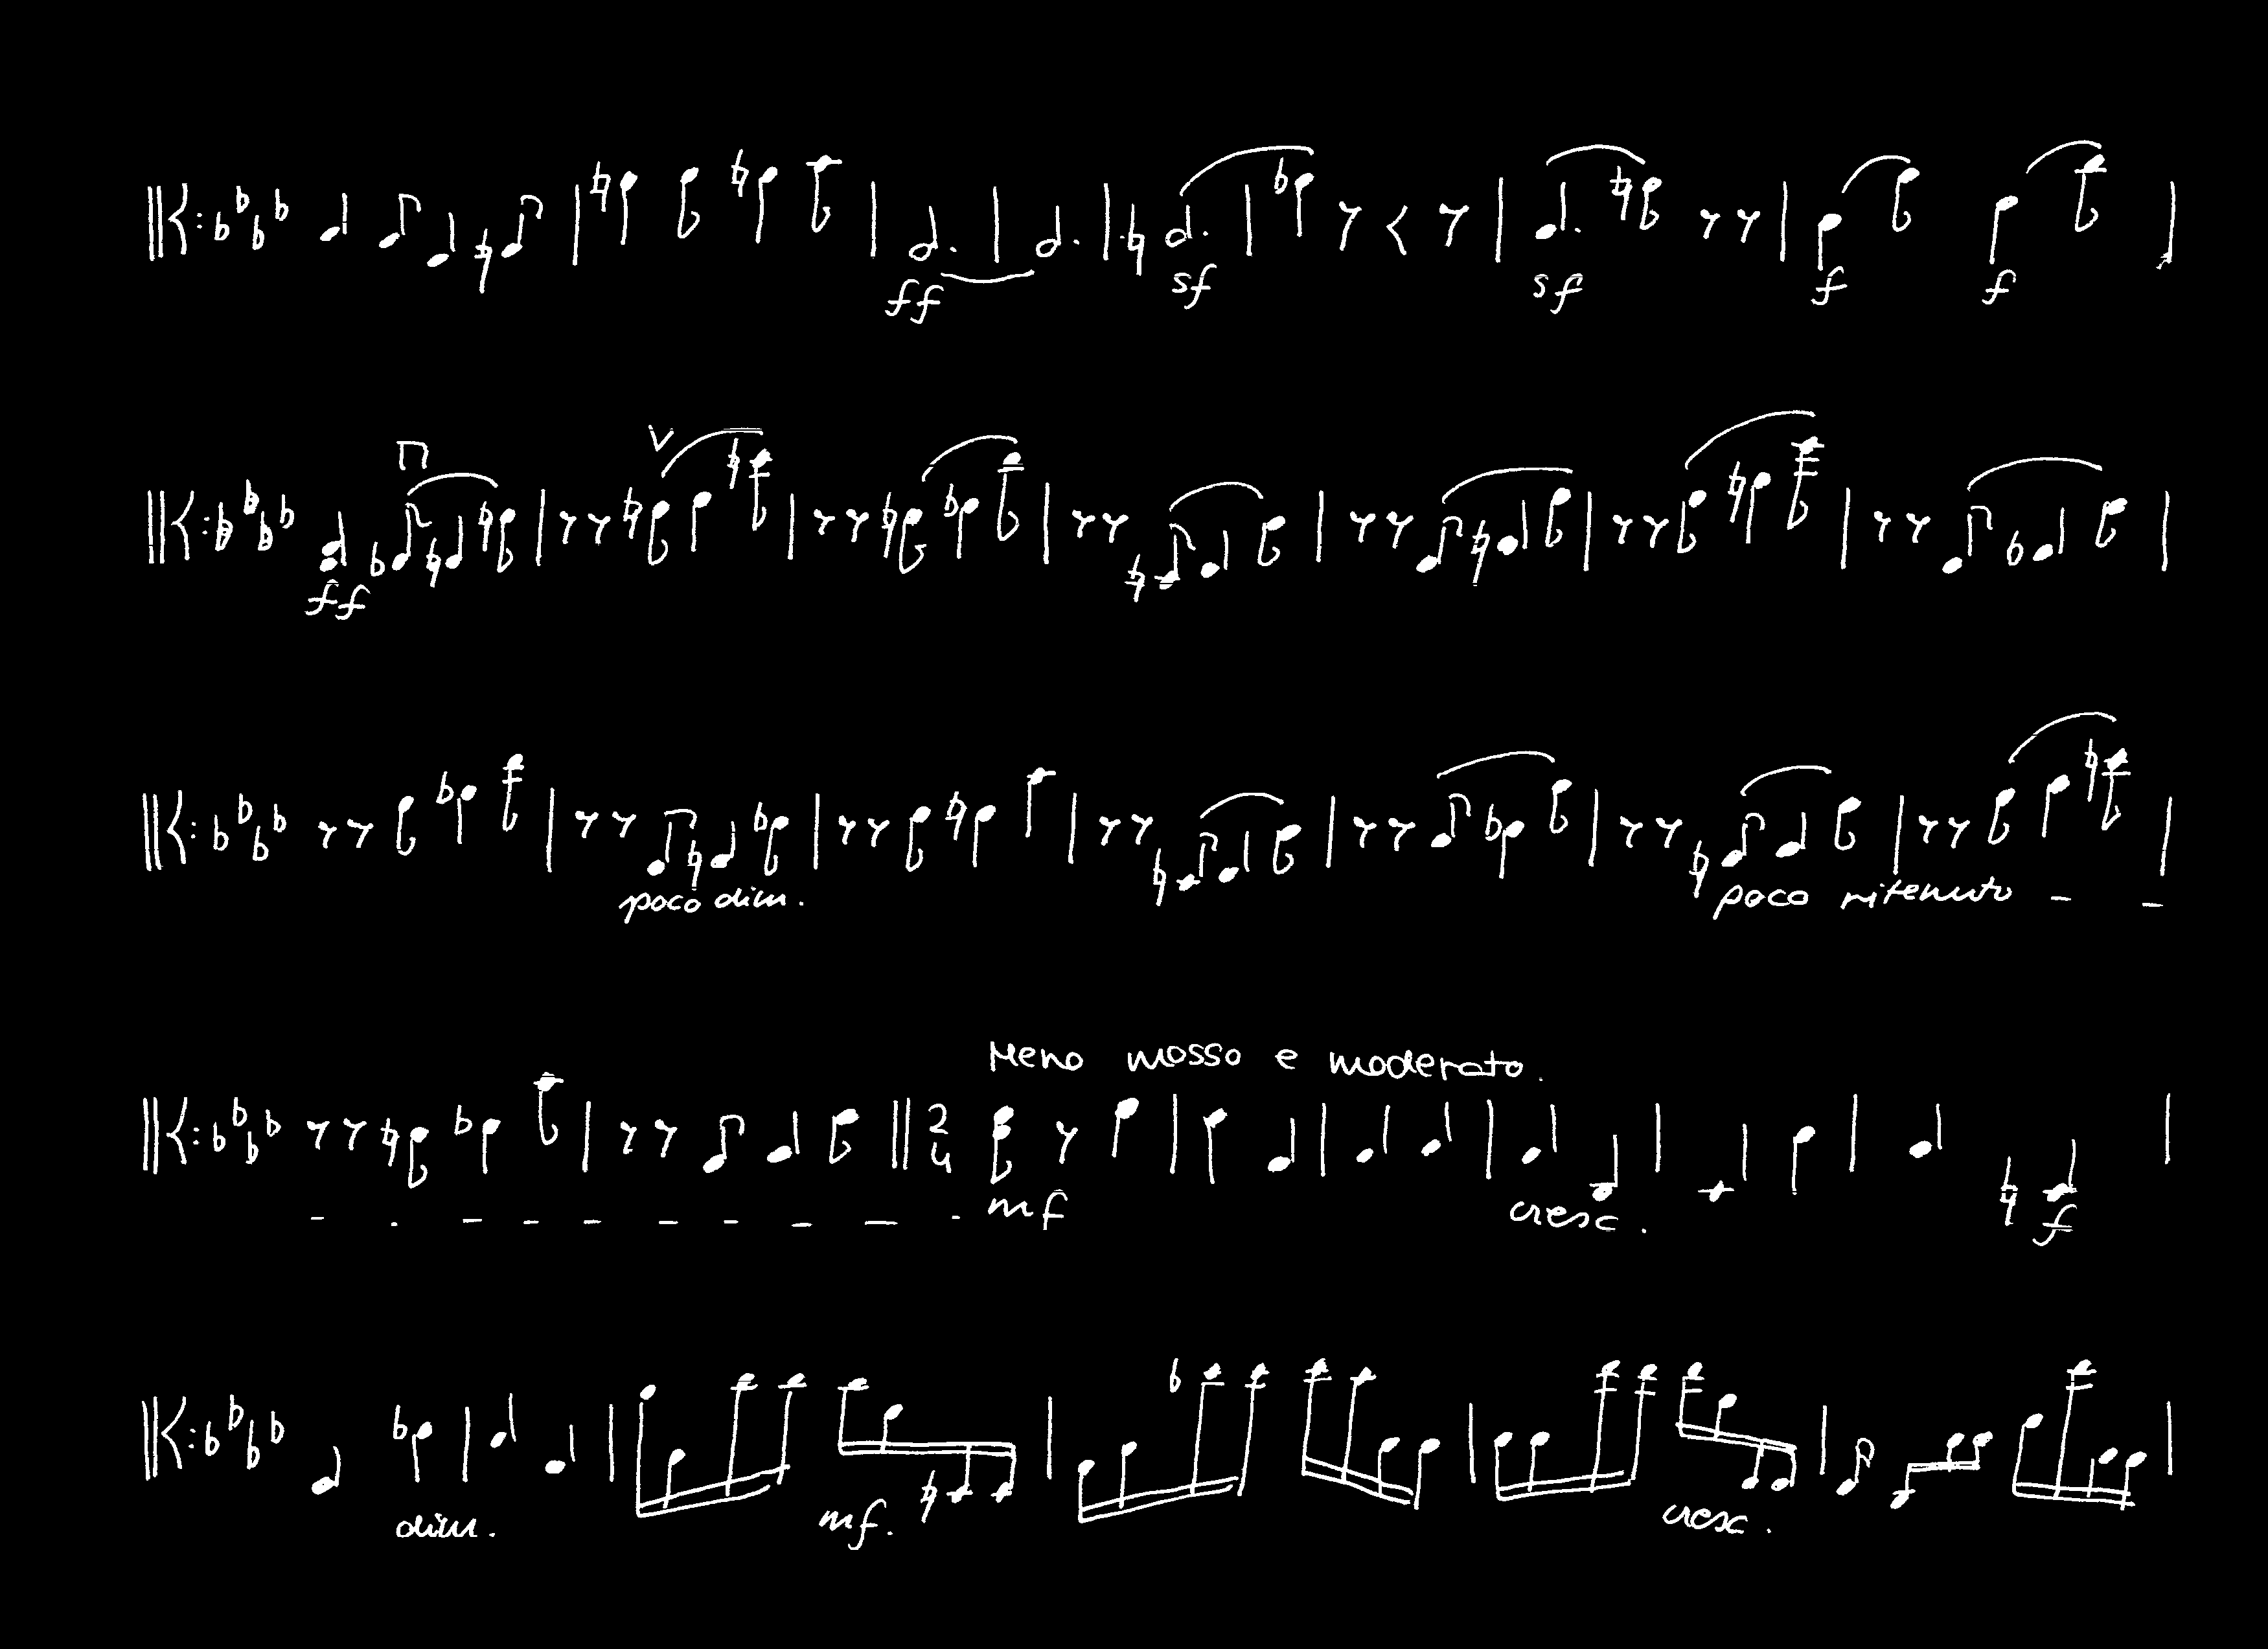 ff sf sf f f
ff
poco dim. poco ritenuto - -
Meno mosso e moderato.
2
4
- - - - - - - - - - mf cresc. f
dim. mf. cresc.